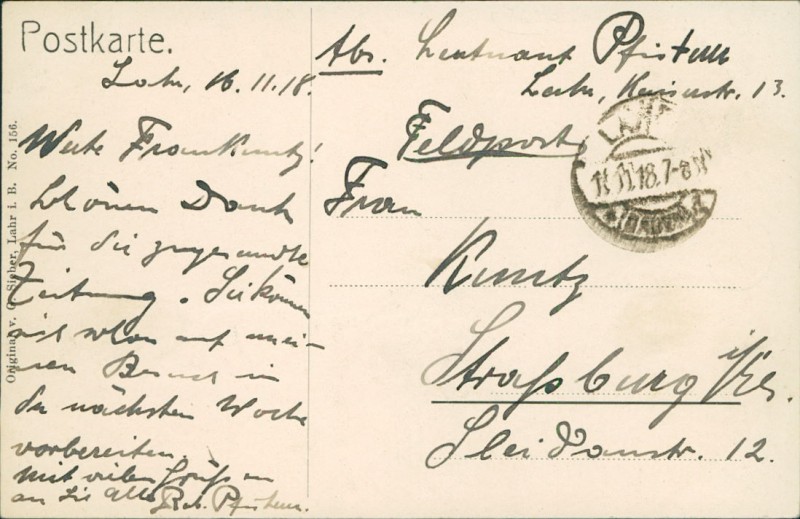 Postkarte.
Lahr, 16.11.18.
Werte Frau Kuntz!
Schönen Dank
für die zugesandte
Zeitung. Sie können
sich schon auf mei-
nen Besuch in
der nächsten Woche
vorbereiten.
Mit vielen Grüßen
an Sie alle Rob. Pfisterer.
Original v. C. Sieber, Lahr i. B. No. 156.
Abs. Leutnant Pfisterer
Lahr, Kaiserstr. 13.
Feldpost
LAHR
11.18.7-8N
Frau
Kuntz
Straßburg i/Els.
Sleidanstr. 12.